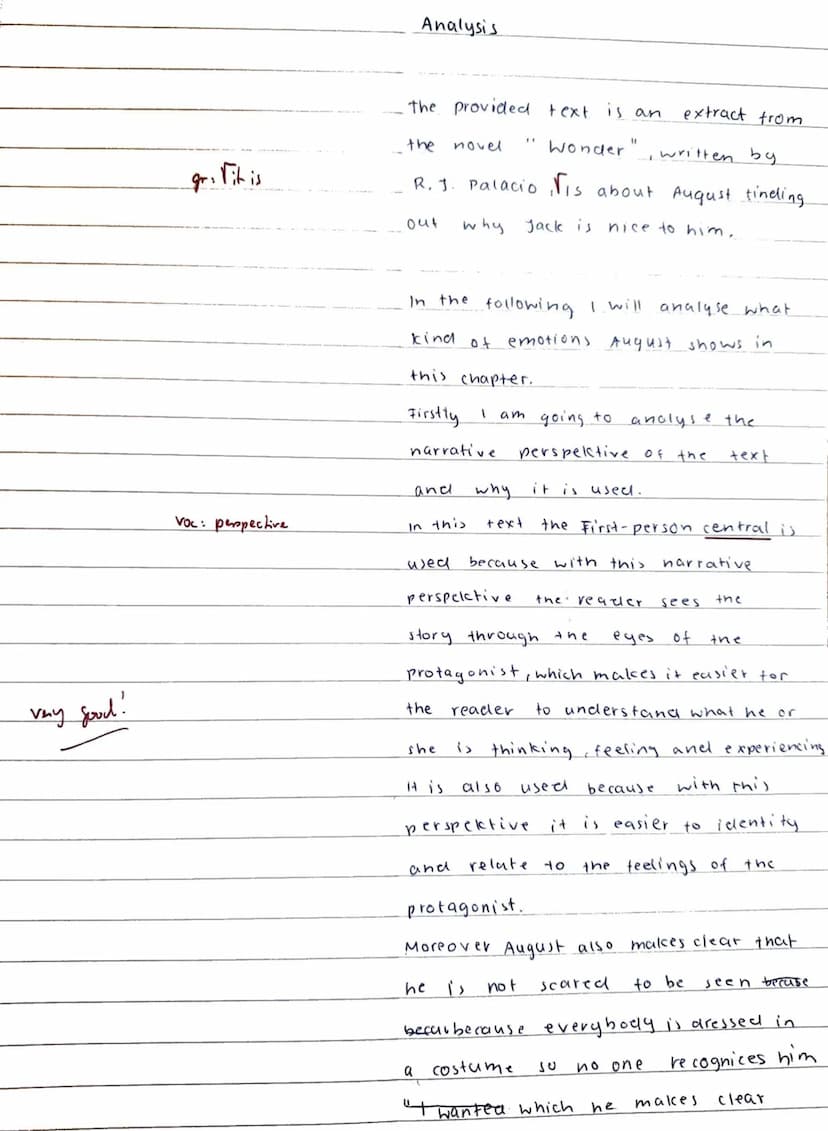 Analysis
the provided text is an extract from
the novel "Wonder", written by
gr. √it is
R. J. Palacio, √is about August finding
out why Jack is nice to him.
In the following I will analyse what
kind of emotions August shows in
this chapter.
Firstly I am going to analyse the
narrative perspektive of the text
and why it is used.
voc: perspective
In this text the First-person central is
used because with this narrative
perspektive the reader sees the
story through the eyes of the
protagonist, which makes it easier for
very good!
the reader to understand what he or
she is thinking, feeling and experiencing
It is also used because with this
perspektive it is easier to identify
and relate to the feelings of the
protagonist.
Moreover August also makes clear that
he is not scared to be seen becuse
becus because everybody is dressed in
a costume so no one recognices him
"I wanted which he makes clear